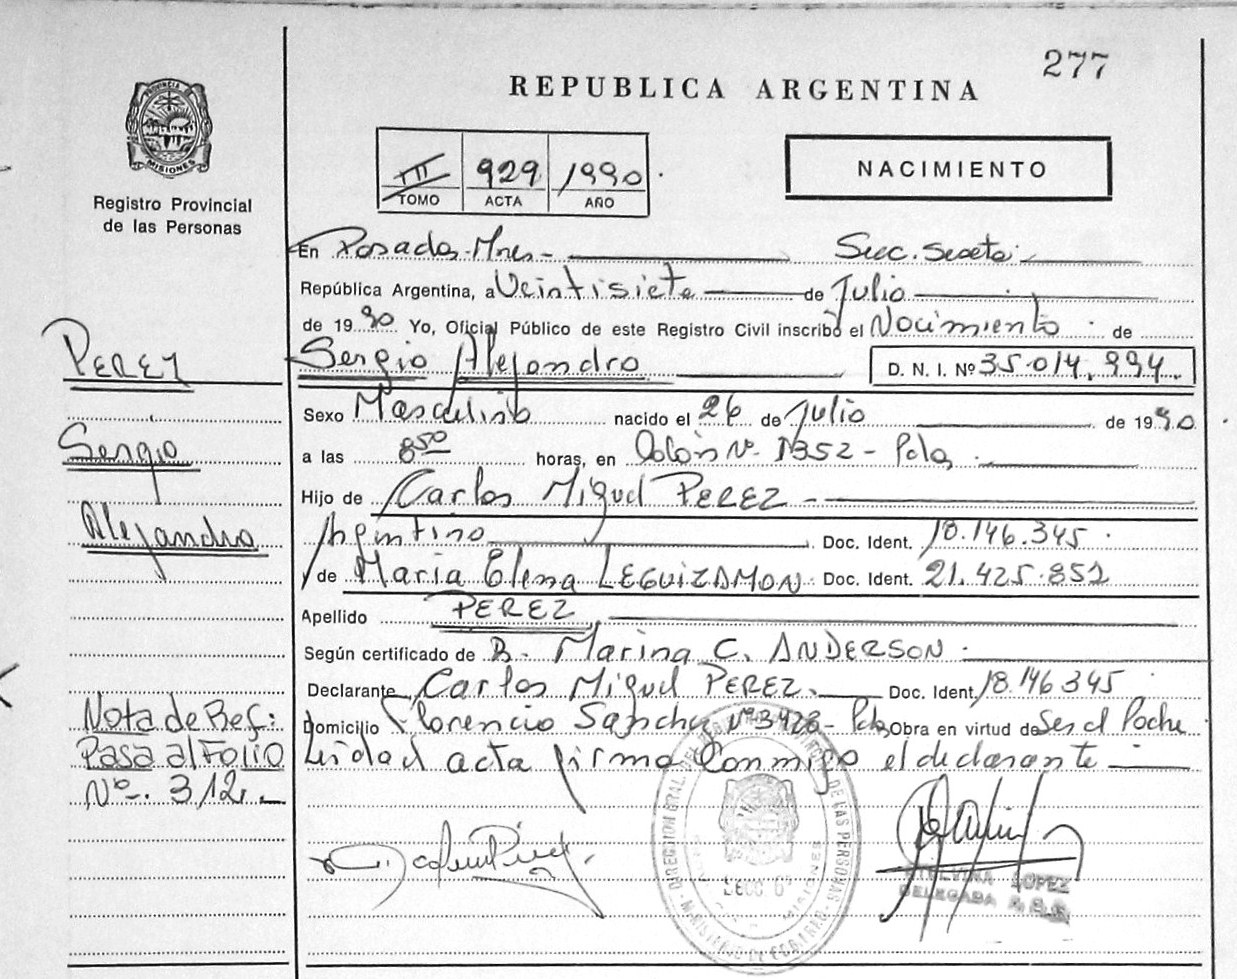 277
REPUBLICA ARGENTINA
PROVINCIA DE MISIONES
Registro Provincial
de las Personas
III 929 1990
TOMO ACTA AÑO
NACIMIENTO
En Posadas-Mnes- Secc. Sexta
República Argentina, a Veintisiete de Julio
de 1990 Yo, Oficial Público de este Registro Civil inscribo el Nacimiento de
Sergio Alejandro D. N. I. Nº 35.014.994.
Sexo Masculino nacido el 26 de Julio de 1990
a las 8 50 horas, en Colón Nº 1352 - Pdas.
Hijo de Carlos Miguel PEREZ
Argentino Doc. Ident. 18.146.345
y de María Elena LEGUIZAMON Doc. Ident. 21.425.852
Apellido PEREZ
Según certificado de B. Marina C. ANDERSON
Declarante Carlos Miguel PEREZ. Doc. Ident. 18.146.345
Domicilio Florencio Sanchez Nº 3428 - Pdas Obra en virtud de Ser el Padre
Leída el acta firma conmigo el declarante
PEREZ
Sergio
Alejandro
Nota de Ref:
Pasa al Folio
Nº. 312.
DIRECCION GRAL. DE LAS PERSONAS
SECC. 6ª
MISIONES
MINISTERIO DE GOBIERNO
LOPEZ
DELEGADA